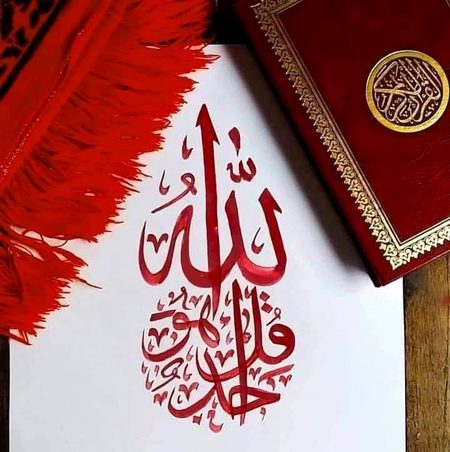 قُلْ هُوَ اللَّهُ أَحَدٌ
القرآن الكريم